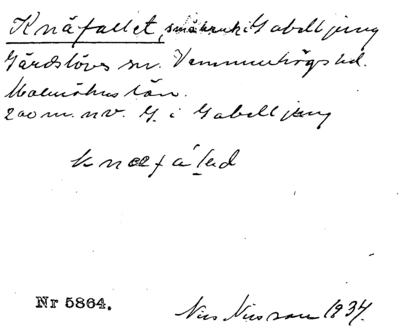 Knäfallet, småbruk i Gabeljung
Gärdslövs sn. Vemmenhögs hd.
Malmöhus län.
200 m. nv. G. i Gabeljung
knæfáled
Nr 5864.
Nils Nilsson 1934.